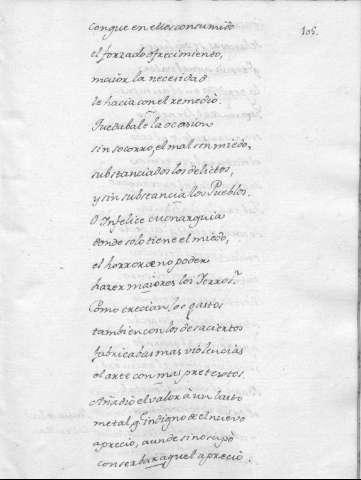 105.
conque en ellos consumido
el forzado ofrecimiento,
maior la necesidad
se hacia con el remedio.
Quedabale la ocasion
sin socorro, el mal sin miedo,
substanciados los delictos,
y sin substancia los Pueblos.
O Infelice Monarquia
donde solo tiene el miedo,
el horror de no poder
hazer maiores los Ierros.
Como crecian los gastos
tambien con los desaciertos
fabricadas mas violencias
el arte con mas pretextos.
Añadió el valor à un bajo
metal, q.e indigno de el nuevo
aprecio, aun de si no supo
conserbar aquel aprecio.